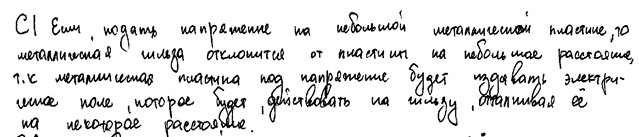 С1 Если, подать напряжение на небольшой металлической пластине, то
металлическая гильза отклонится от пластины на небольшое расстояние,
т.к металлическая пластина под напряжение будет издавать электри-
ческое поле, которое будет, действовать на гильзу, отталкивая её
на некоторое расстояние.